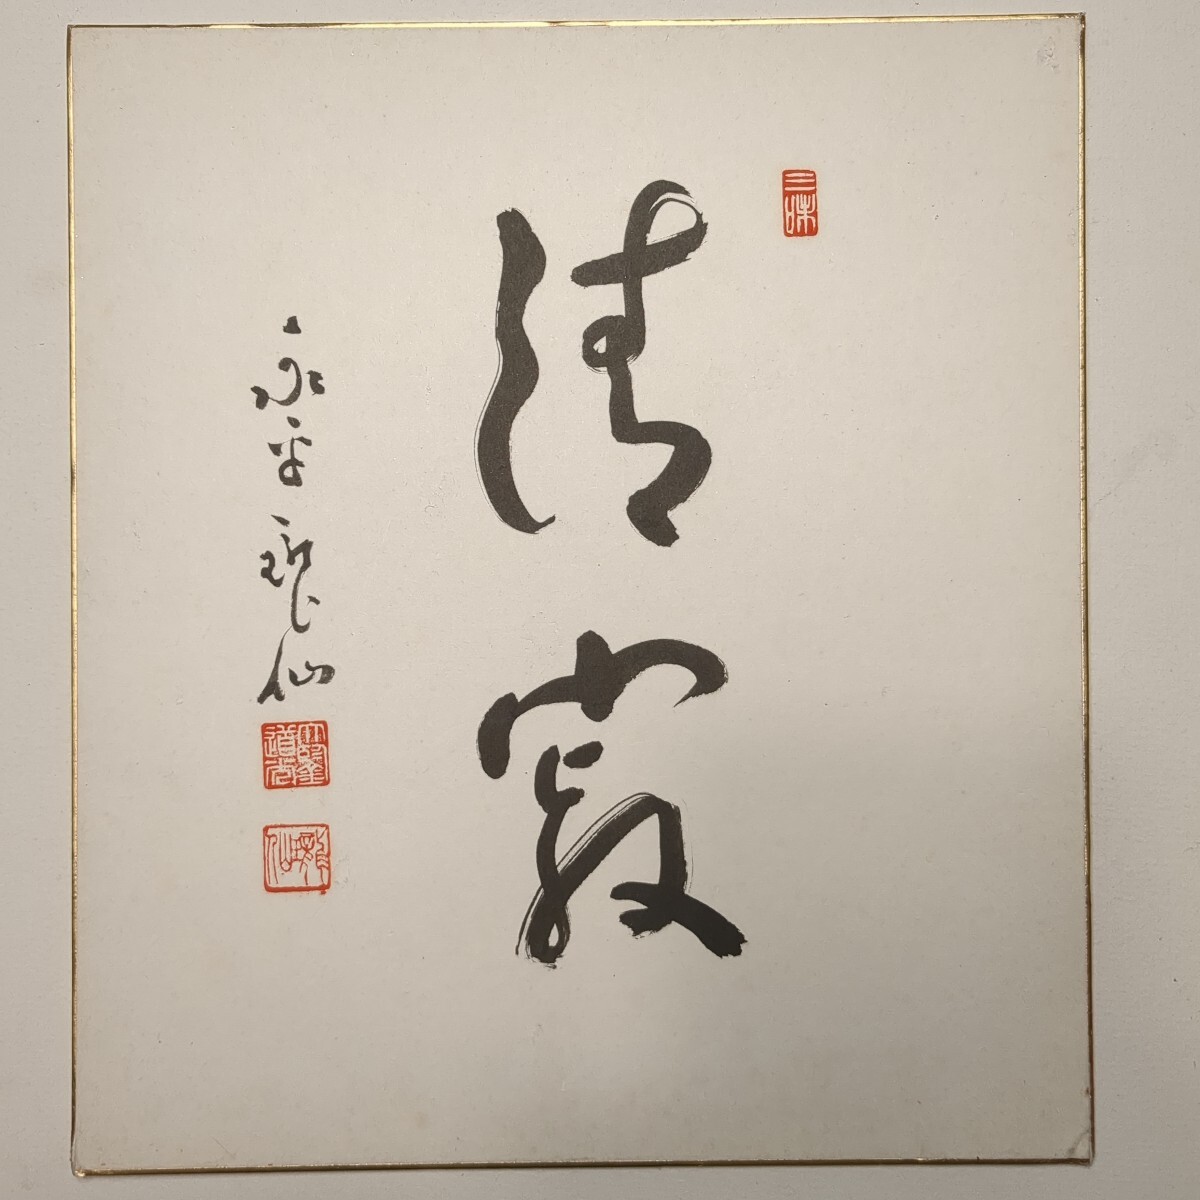 三昧
清寂
永平 瓏仙